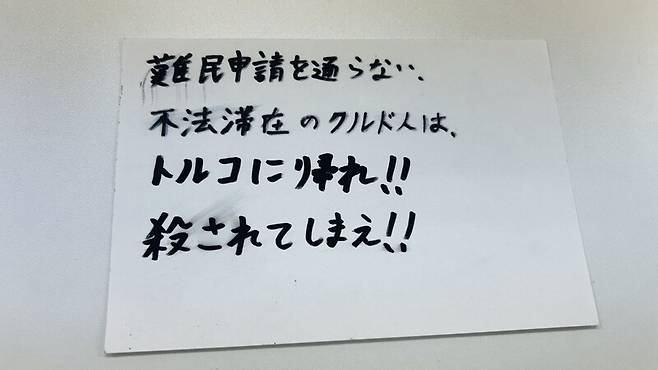 難民申請を通らない、
不法滞在のクルド人は、
トルコに帰れ!!
殺されてしまえ!!